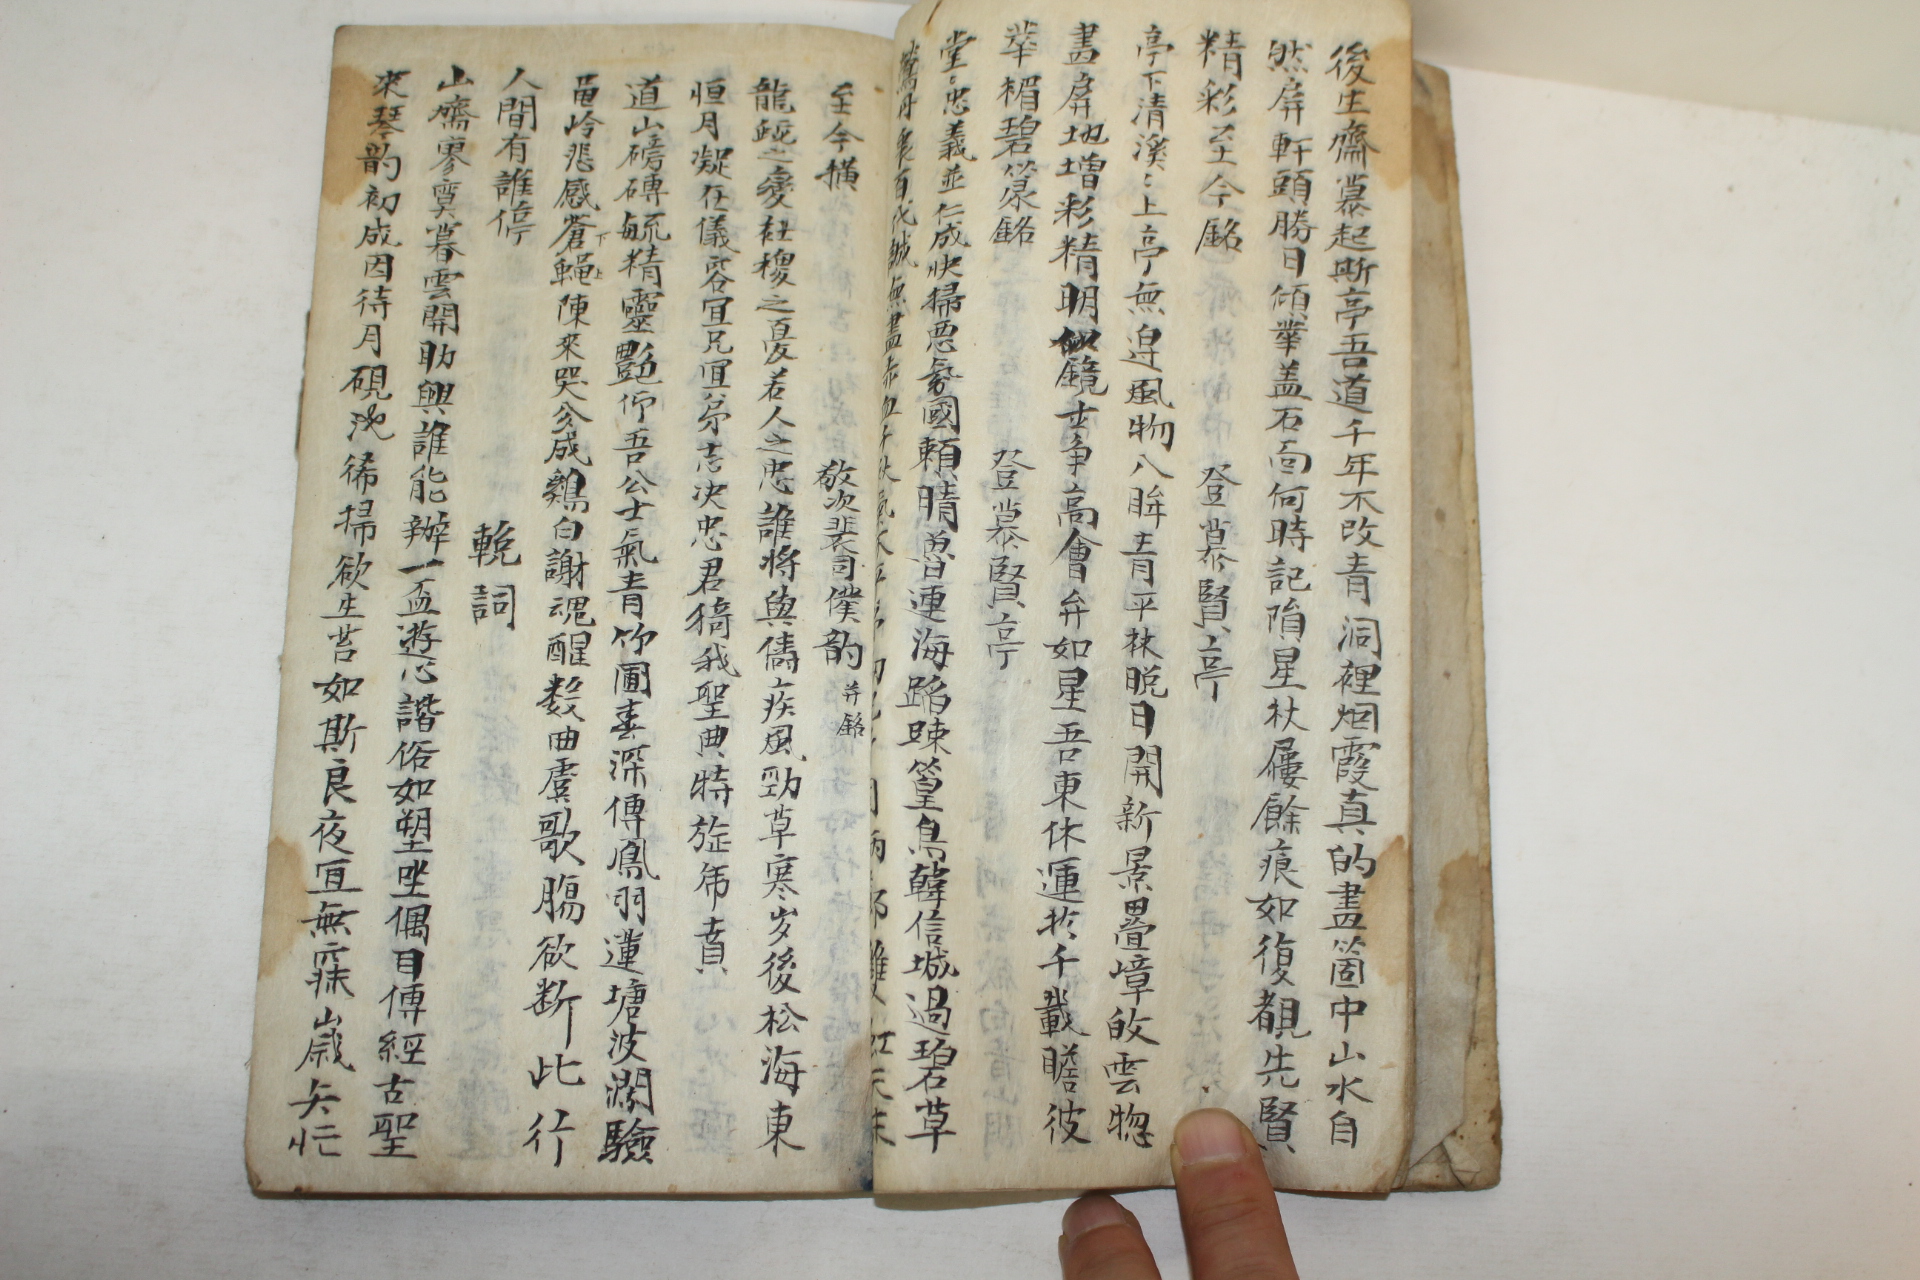 後生齋慕起斯亭吾道千年不改青洞裡烟霞真的盡箇中山水自
然屏軒頭勝日傾華盖石面何時記隕星杖屨餘痕如復覩先賢
精彩至今銘
登慕賢亭
亭下清溪溪上亭無邊風物八眸青平林脱日開新景疊嶂收雲惚
畵屏地增彩精明似鏡士爭高會弁如星吾東休運於千載瞻彼
華楣碧篆銘
登慕賢亭
堂堂忠義並仁成快掃悪氛國賴晴魯連海蹈踈篁鳥韓信城過碧草
百代誠無盡赤血千秋
至今橫
敬次裴司僕韵 并銘
龍蛇之變社稷之憂若人之忠誰將與儔疾風勁草寒岁後松海東
恒月凝在儀容宜兄宜弟志决忠君猗我聖典特旋帛賁
道山磅礴毓精靈艶仰吾公士氣青竹圃春深傳鳳羽蓮塘波濶驗
黽岭悲感蒼蝇陳來哭爻成鷄白謝魂醒数曲虞歌膓欲断此行
人間有誰停
輓詞
山齋寥寞暮雲開助興誰能辦一盃遊心諧俗如塑坐偶目傅經古聖
來琴韵初成因待月硯池稀掃欲生苔如斯良夜宜無寐山嵗兵忙